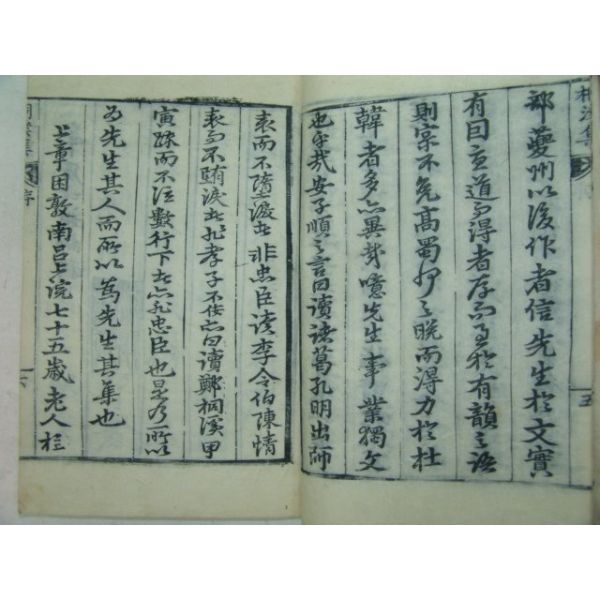 桐溪集
五
部夔州以後作者信先生於文實
有道而得者存而至於有韻之語
則不免高蜀之晩而得力於杜
韓者多亦異哉噫先生事業獨文
也乎哉安子順之言曰讀諸葛孔明出師
表而不墮淚者非忠臣讀李令伯陳情
表而不墮淚者非孝子不佞亦曰讀鄭桐溪甲
寅疏而不泣數行下者亦非忠臣也是乃所以
为先生其人而所以爲先生其集也
上章困敦南呂上浣七十五歲老人於
桐溪集
序
六